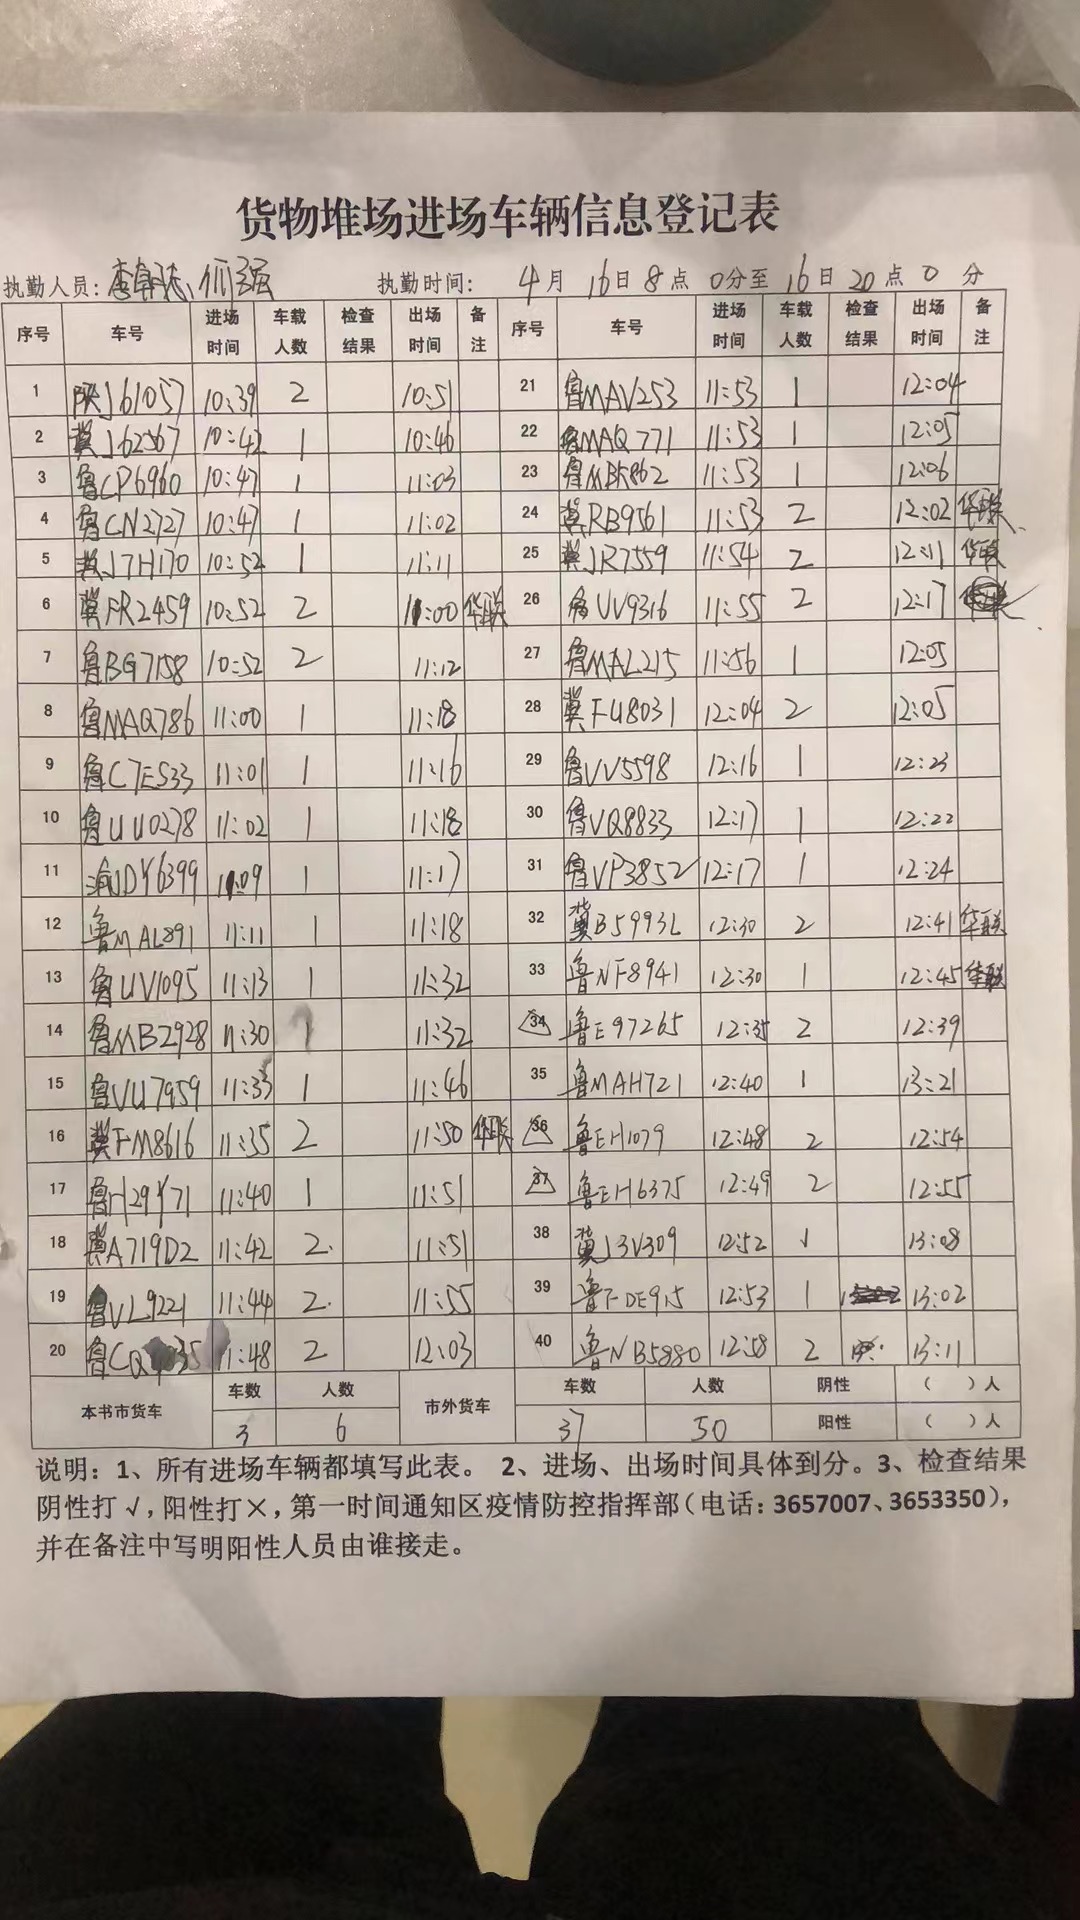 货物堆场进场车辆信息登记表
执勤人员: 强 执勤时间: 4月16日8点0分至16日20点0分
序号 车号 进场时间 车载人数 检查结果 出场时间 备注 序号 车号 进场时间 车载人数 检查结果 出场时间 备注
1 陕J61057 10:39 2 10:51 21 鲁MAV253 11:53 1 12:04
2 冀J62567 10:42 1 10:46 22 鲁MAQ771 11:53 1 12:05
3 鲁CP6960 10:47 1 11:03 23 11:53 1 12:06
4 鲁CN2727 10:47 1 11:02 24 冀RB9561 11:53 2 12:02 华联
5 冀J7H170 10:52 1 11:11 25 冀JR7559 11:54 2 12:11 华联
6 冀FR2459 10:52 2 11:00 华联 26 鲁UV9316 11:55 2 12:17
7 鲁BG7158 10:52 2 11:12 27 鲁MAL215 11:56 1 12:05
8 鲁MAQ786 11:00 1 11:18 28 冀FU8031 12:04 2 12:05
9 鲁C7ES33 11:01 1 11:16 29 鲁VV5598 12:16 1 12:23
10 鲁UU0278 11:02 1 11:18 30 鲁VQ8833 12:17 1 12:22
11 11:09 1 11:17 31 鲁VP3852 12:17 1 12:24
12 鲁MAL891 11:11 1 11:18 32 冀B5993L 12:30 2 12:41 华联
13 鲁UV1095 11:13 1 11:32 33 鲁NF8941 12:30 1 12:45 华联
14 鲁MB2928 11:30 1 11:32 34 鲁E97265 12:35 2 12:39
15 鲁VU7959 11:33 1 11:46 35 鲁MAH721 12:40 1 13:21
16 冀FM8616 11:35 2 11:50 华联 36 鲁EH1079 12:48 2 12:54
17 鲁H29Y71 11:40 1 11:51 37 鲁EH6375 12:49 2 12:55
18 冀A719D2 11:42 2 11:51 38 冀J3V309 12:52 1 13:08
19 鲁VL9221 11:44 2 11:55 39 12:53 1 13:02
20 11:48 2 12:03 40 鲁NB5880 12:58 2 13:11
本书市货车 车数 人数 市外货车 车数 人数 阴性 ( )人
3 6 37 50 阳性 ( )人
说明：1、所有进场车辆都填写此表。 2、进场、出场时间具体到分。3、检查结果
阴性打√，阳性打×，第一时间通知区疫情防控指挥部（电话：3657007、3653350），
并在备注中写明阳性人员由谁接走。